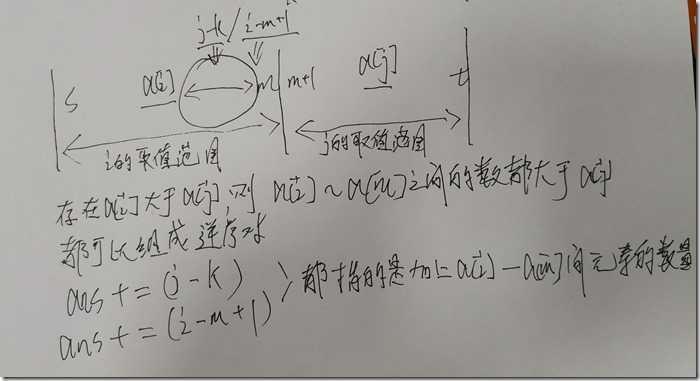 j-k / i-m+1
s a[i] m m+1 a[j] t
i的取值范围 j的取值范围
存在a[i]大于a[j],则 a[i]~a[m]之间的数都大于a[j]
都可以组成逆序对
ans+=(j-k)
ans+=(i-m+1) 都指的是加上a[i]-a[m]间元素的数量